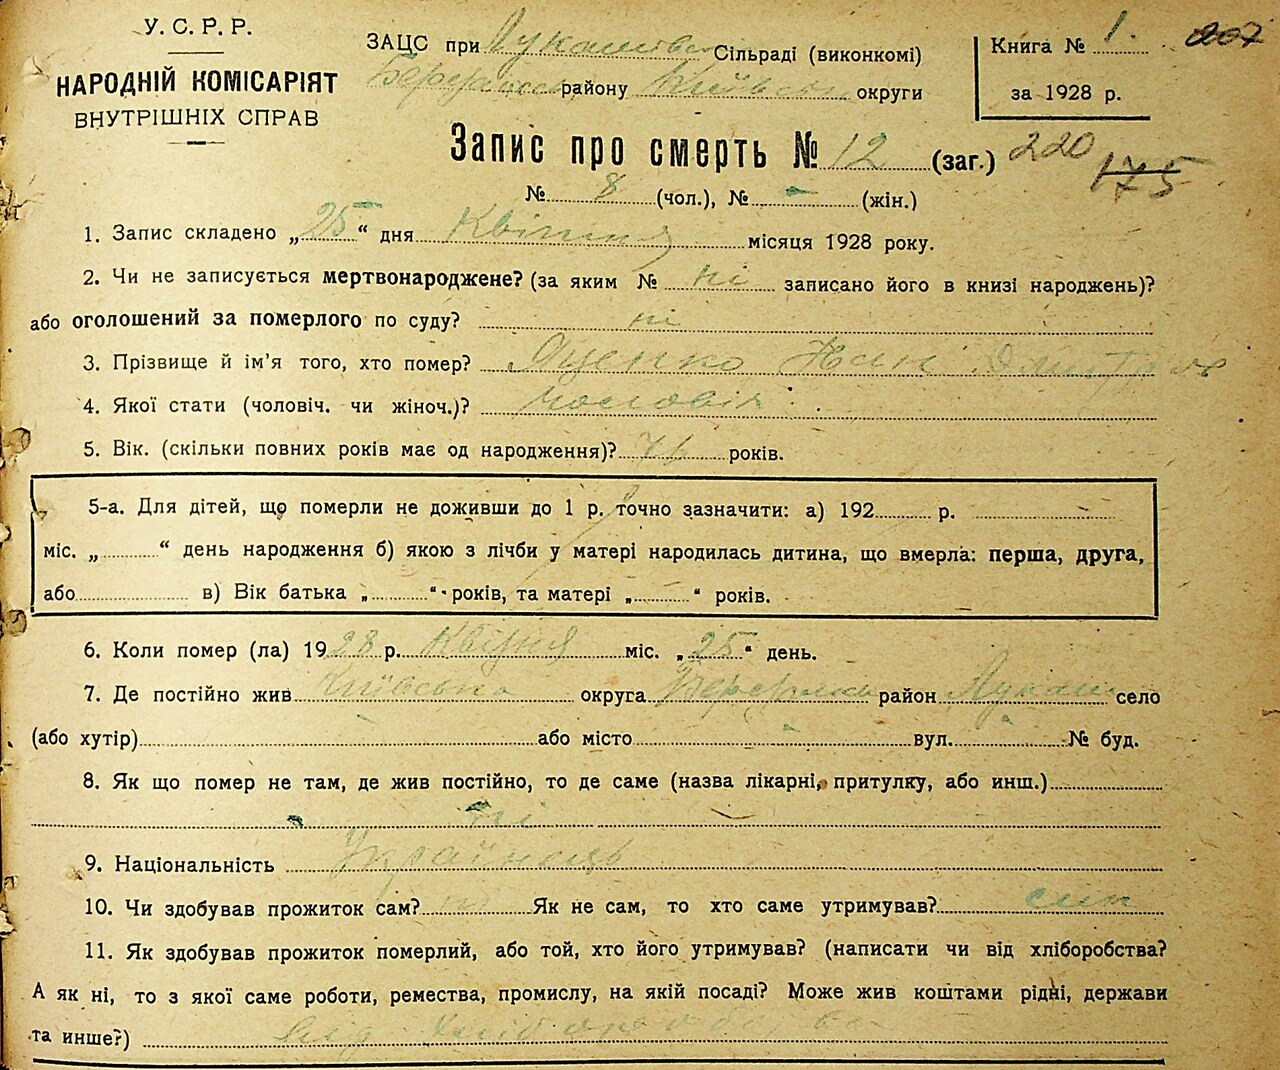 У. С. Р. Р.
НАРОДНІЙ КОМІСАРІЯТ
ВНУТРІШНІХ СПРАВ
ЗАЦС при Лукашівськ Сільраді (виконкомі)
району Київськ округи
Книга № 1.
за 1928 р.
207
Запис про смерть № 12 (заг.)
220
175
№ 8 (чол.), № - (жін.)
1. Запис складено „25“ дня Квітня місяця 1928 року.
2. Чи не записується мертвонароджене? (за яким № ні записано його в книзі народжень)?
або оголошений за померлого по суду? ні
3. Прізвище й ім'я того, хто помер? Яценко
4. Якої стати (чоловіч. чи жіноч.)? чоловіч
5. Вік. (скільки повних років має од народження)? років.
5-а. Для дітей, що померли не доживши до 1 р. точно зазначити: а) 192 р.
міс. „ “ день народження б) якою з лічби у матері народилась дитина, що вмерла: перша, друга,
або в) Вік батька „ “ років, та матері „ “ років.
6. Коли помер (ла) 1928 р. Квітня міс. „25“ день.
7. Де постійно жив Київська округа район Лукаш село
(або хутір) або місто - вул. - № буд.
8. Як що помер не там, де жив постійно, то де саме (назва лікарні, притулку, або инш.)
ні
9. Національність Українець
10. Чи здобував прожиток сам? ні Як не сам, то хто саме утримував? син
11. Як здобував прожиток померлий, або той, хто його утримував? (написати чи від хліборобства?
А як ні, то з якої саме роботи, ремества, промислу, на якій посаді? Може жив коштами рідні, держави
та инше?) від хліборобства